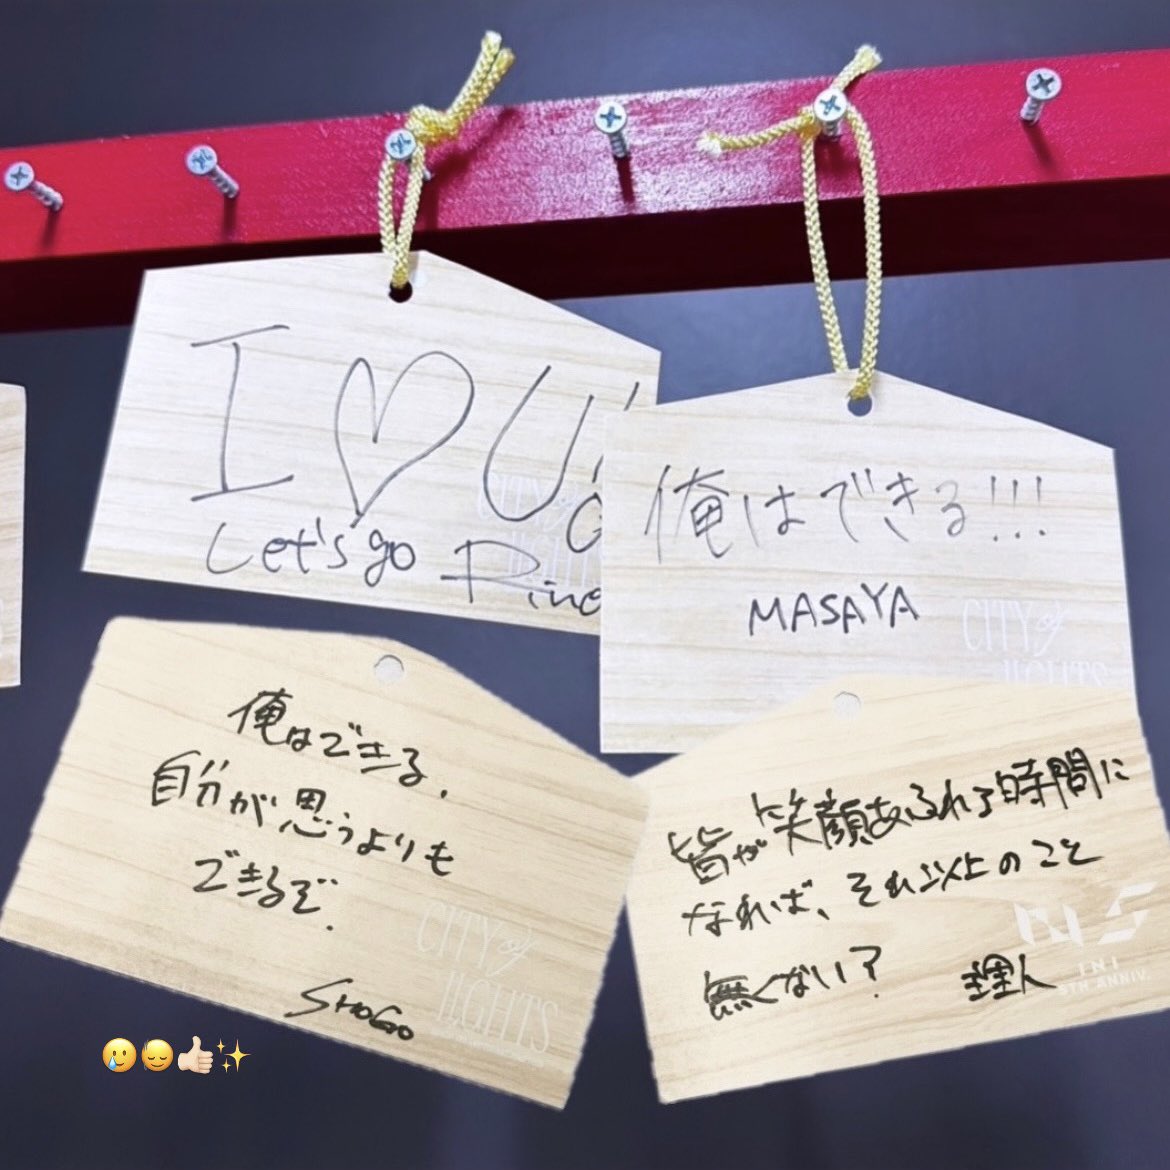 I ♡ U!
Let's go
俺はできる!!!
MASAYA
CITY of
LIGHTS
俺はできる.
自分が思うよりも
できるぞ.
SHOGO
CITY of
LIGHTS
皆が笑顔あふれる時間に
なれば、それ以上のこと
無くない?
理人
INI
5TH ANNIV.
🥲😔👍🏻✨